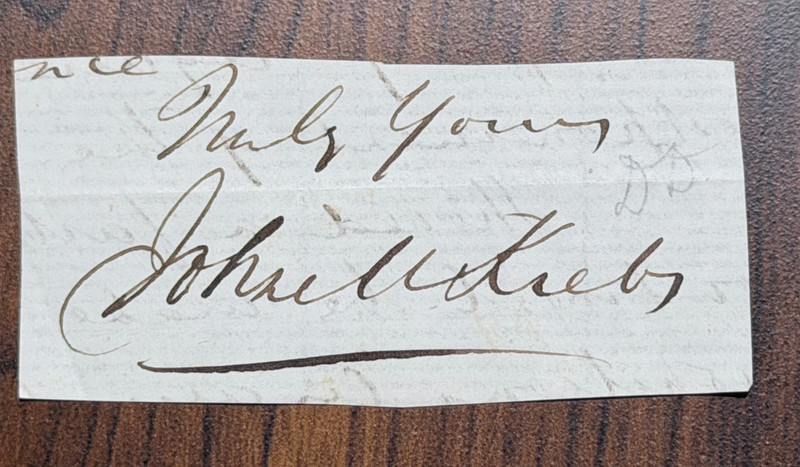 nce
Truly Yours
John M Krebs
DD